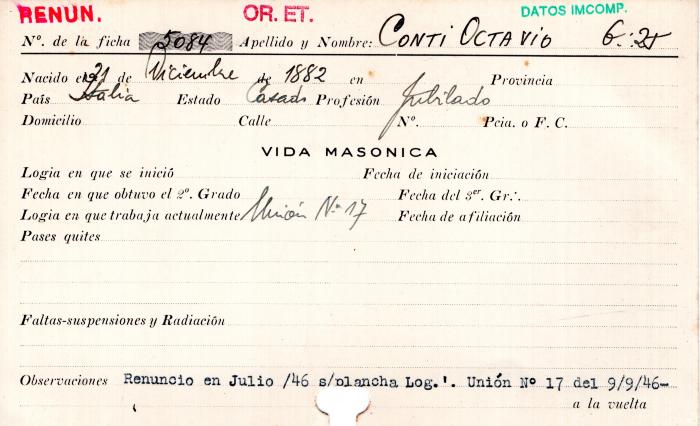 RENUN. OR. ET. DATOS IMCOMP.
Nº. de la ficha 5084 Apellido y Nombre: CONTI OCTAVIO
Nacido el 21 de Diciembre de 1882 en Provincia
País Italia Estado Casado Profesión Jubilado
Domicilio Calle Nº. Pcia. o F. C.
VIDA MASONICA
Logia en que se inició Fecha de iniciación
Fecha en que obtuvo el 2º. Grado Fecha del 3er. Gr∴
Logia en que trabaja actualmente Unión Nº 17 Fecha de afiliación
Pases quites
Faltas-suspensiones y Radiación
Observaciones Renuncio en Julio /46 s/plancha Log.'. Unión Nº 17 del 9/9/46-
a la vuelta